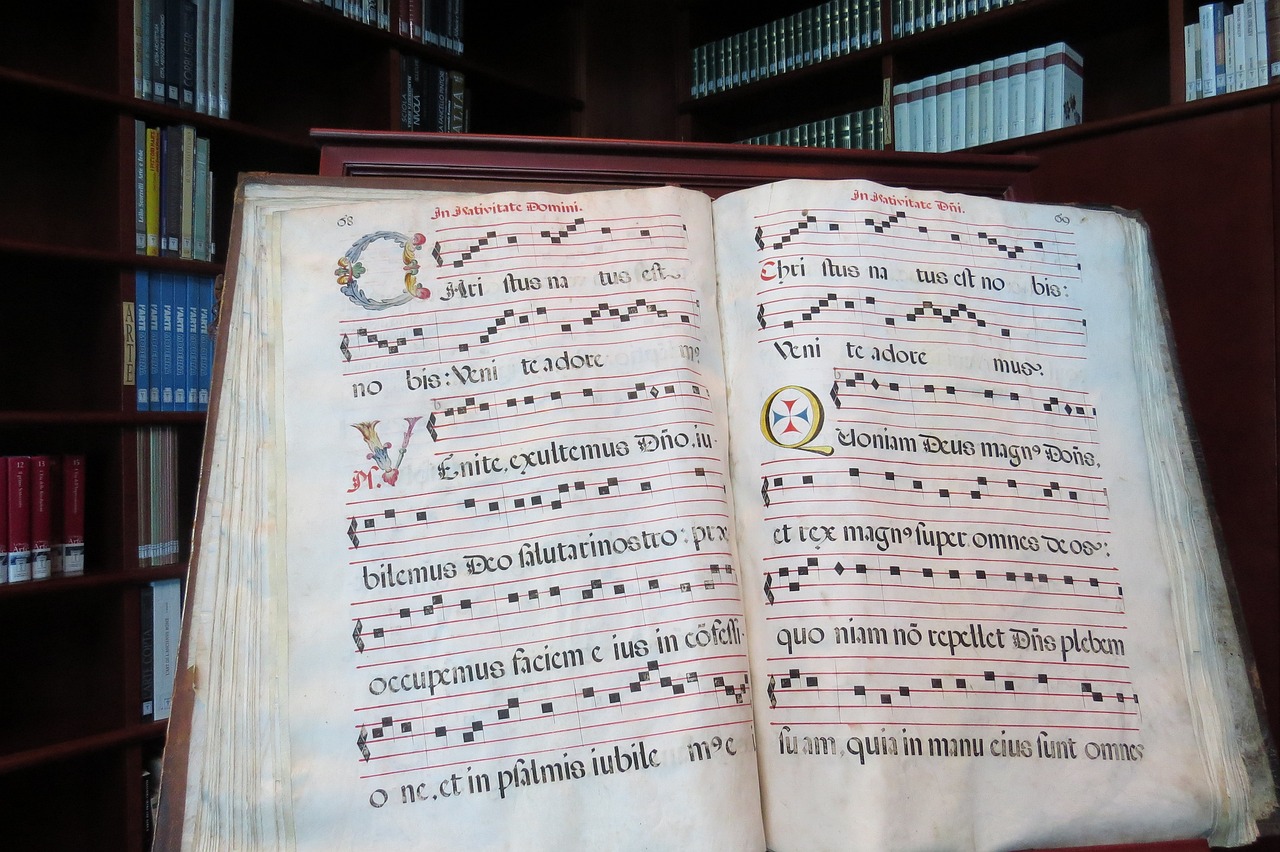 68
In Nativitate Domini.
CHri stus na tus est
no bis: Veni te adore m⁹
Ps. VEnite, exultemus Dño. iu-
bilemus Deo salutarinostro: præ
occupemus faciem e ius in cōfessi-
o ne, et in psalmis iubile m⁹ e
60
In Nativitate Dñi.
Chri stus na tus est no bis:
Veni te adore mus.
QUoniam Deus magn⁹ Doñs,
et rex magn⁹ super omnes deos:
quo niam nō repellet Dñs plebem
suam, quia in manu eius sunt omnes
ARTE
L'ARTE
L'ARTE
L'ARTE
L'ARTE